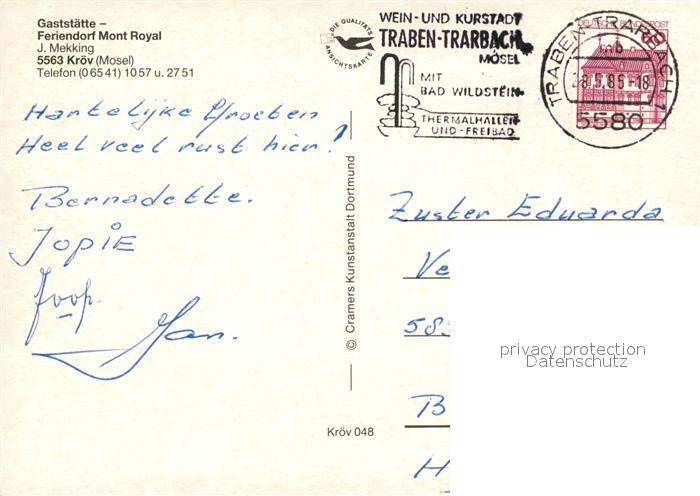 Gaststätte –
Feriendorf Mont Royal
J. Mekking
5563 Kröv (Mosel)
Telefon (0 65 41) 10 57 u. 27 51
DIE QUALITÄTS
ANSICHTSKARTE
WEIN- UND KURSTADT
TRABEN-TRARBACH
MOSEL
MIT
BAD WILDSTEIN
THERMALHALLEN
UND -FREIBAD
TRABEN-TRARBACH
b
28.5.85-18
5580
DEUTSCHE BUNDESPOST
Hartelijke Groeten
Heel veel rust hier!
Bernadette.
JOPIE
Joop.
Jan.
© Cramers Kunstanstalt Dortmund
Kröv 048
Zuster Eduarda
Ve
585
B
H
privacy protection
Datenschutz